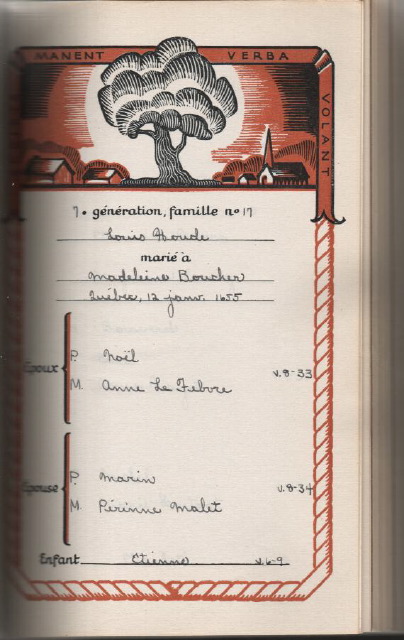 MANENT VERBA VOLANT
7e génération, famille no 17
Louis Houde
marié à
Madeleine Boucher
Québec, 12 janv. 1655
Époux P. Noël
M. Anne Le Febvre v. 8-33
Épouse P. Marin
M. Périnne Malet v. 8-34
Enfant Etienne v. 6-9